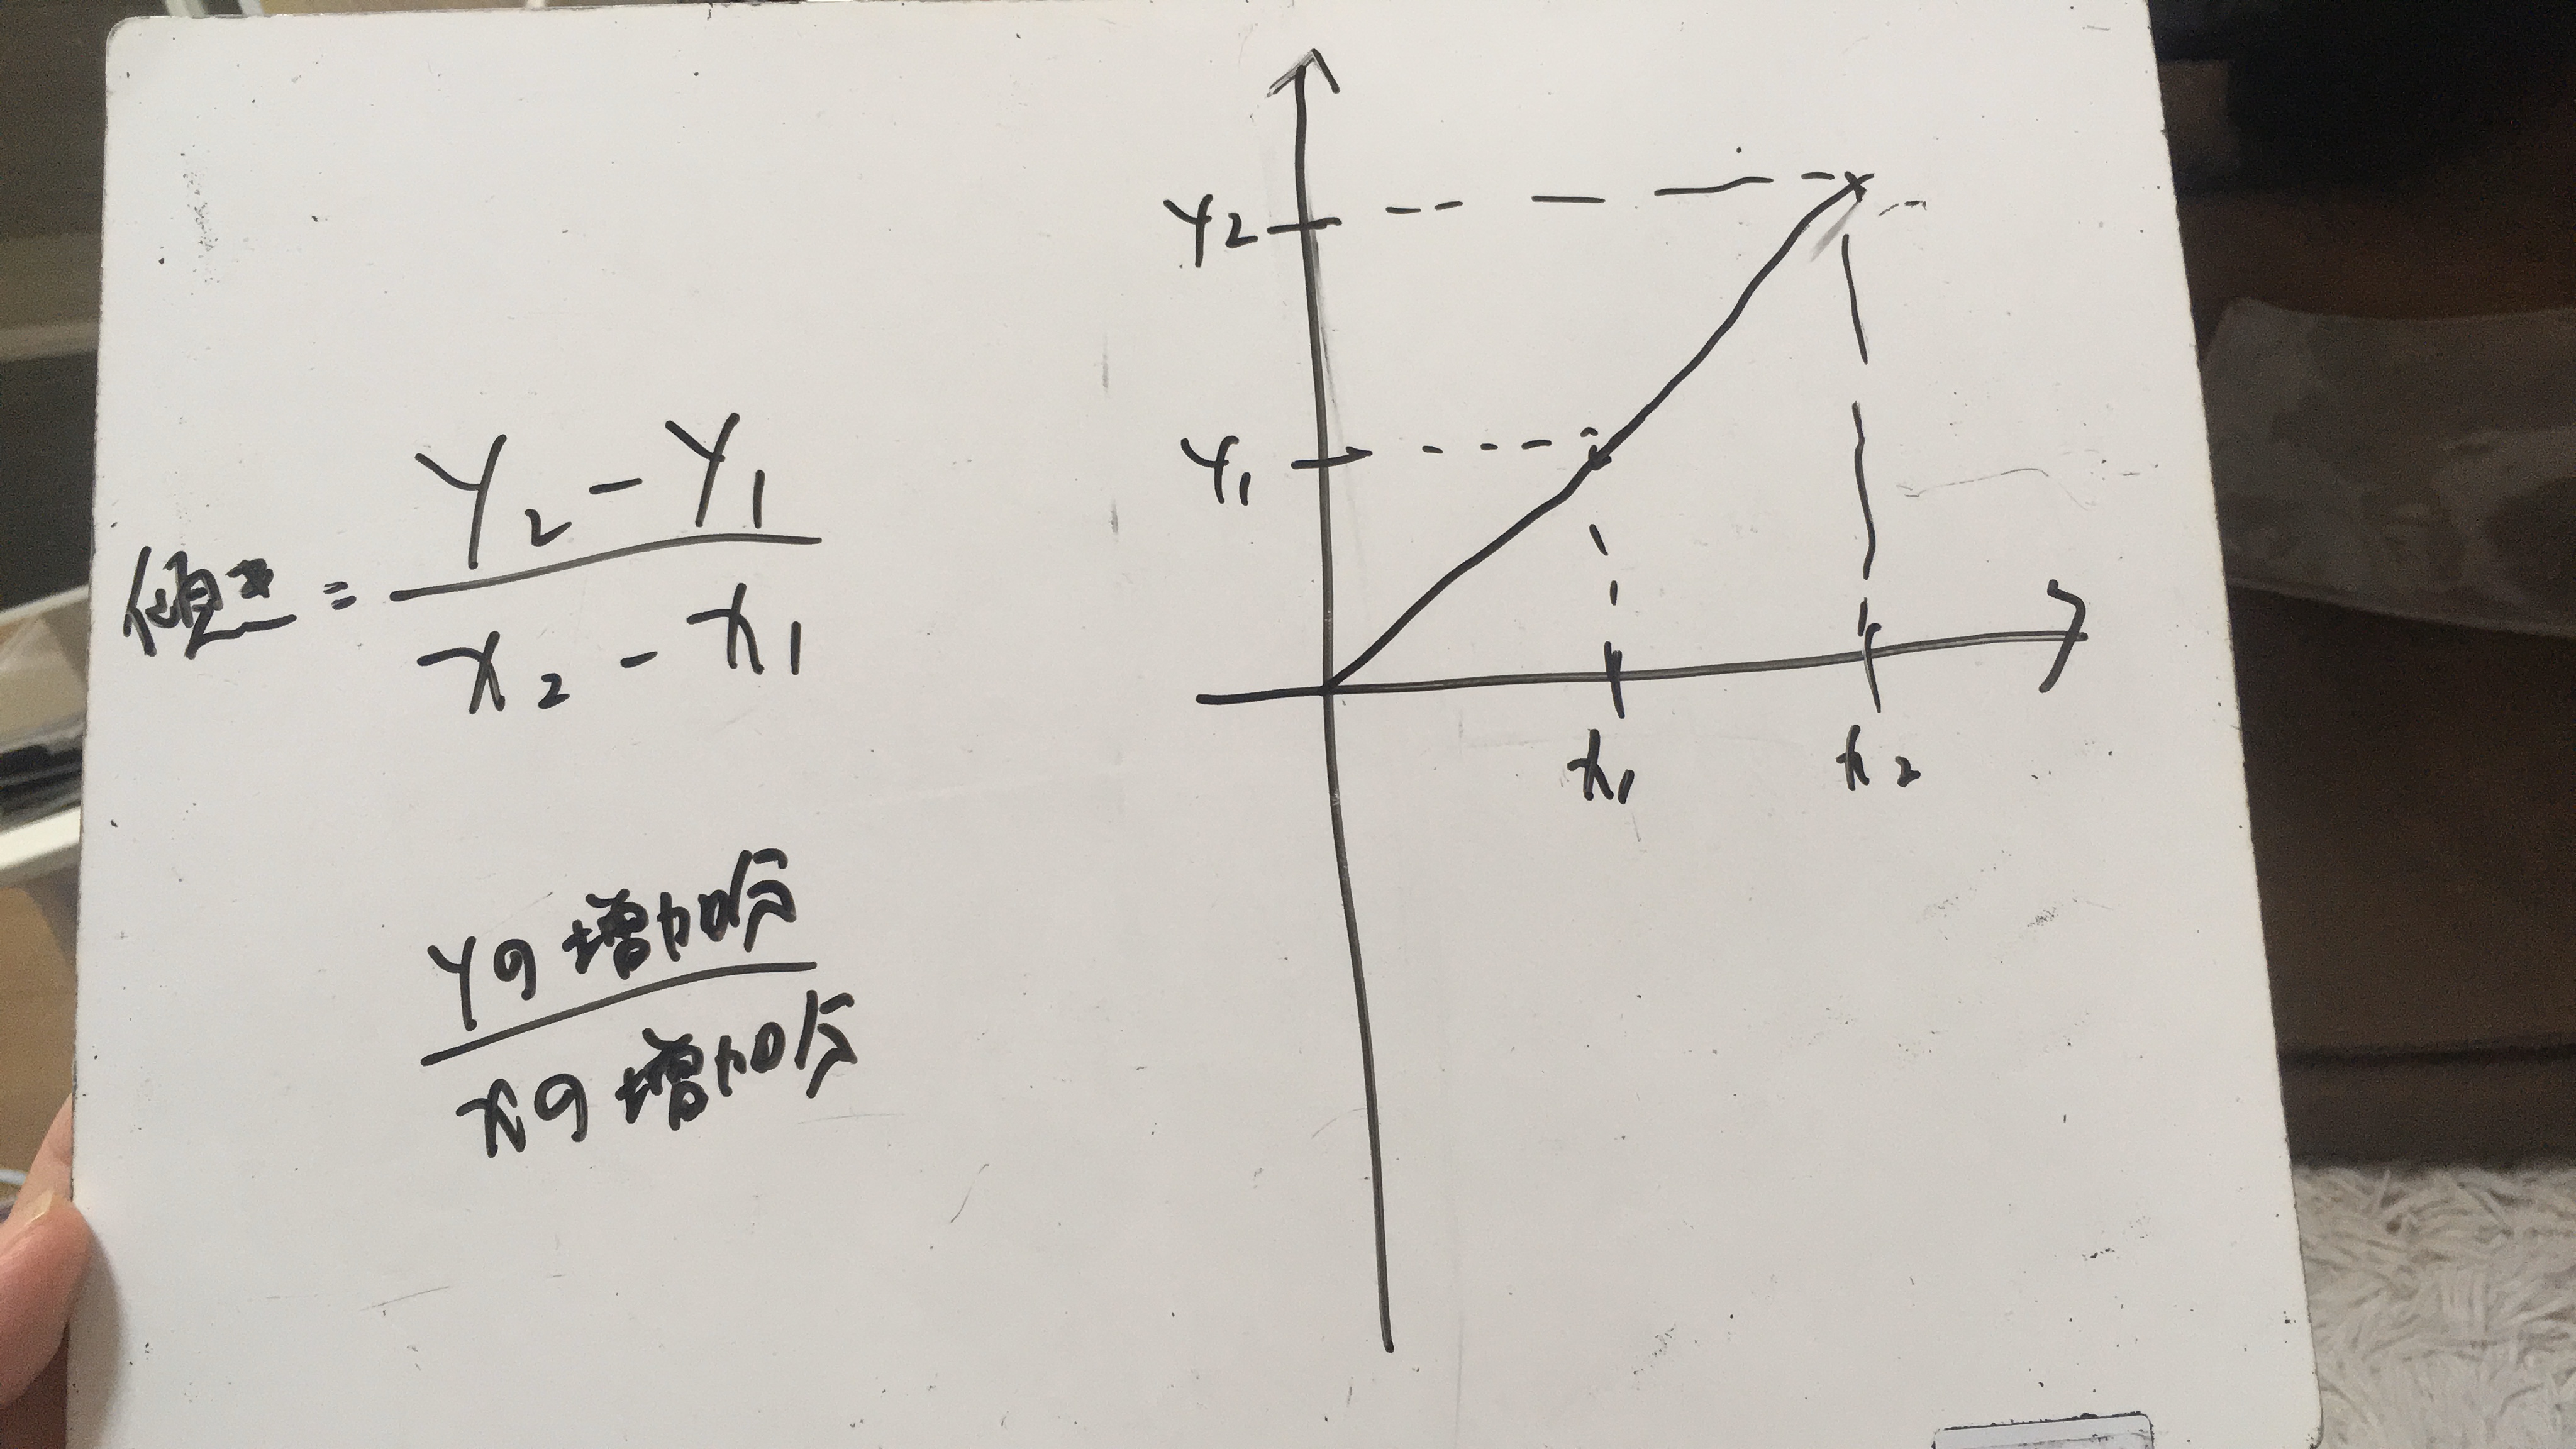 傾き = (Y₂ - Y₁) / (x₂ - x₁)
Yの増加分
xの増加分
Y₂
Y₁
x₁
x₂